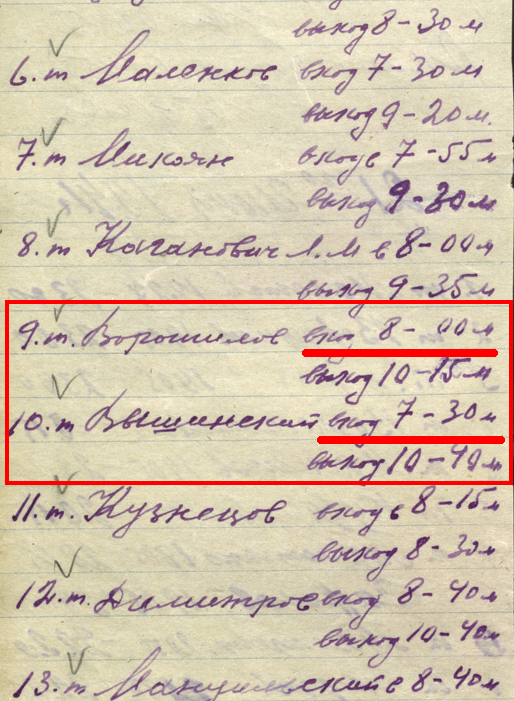 выход 8-30 м
6. т Маленков вход 7-30 м
выход 9-20 м.
7. т Микоян вход в 7-55 м
выход 9-30 м
8. т Каганович Л.М в 8-00 м
выход 9-35 м
9. т. Ворошилов вход 8-00 м
выход 10-15 м
10. т Вышинский вход 7-30 м
выход 10-40 м
11. т. Кузнецов вход в 8-15 м
выход 8-30 м
12. т. Димитров вход 8-40 м
выход 10-40 м
13. т Мануильский в 8-40 м